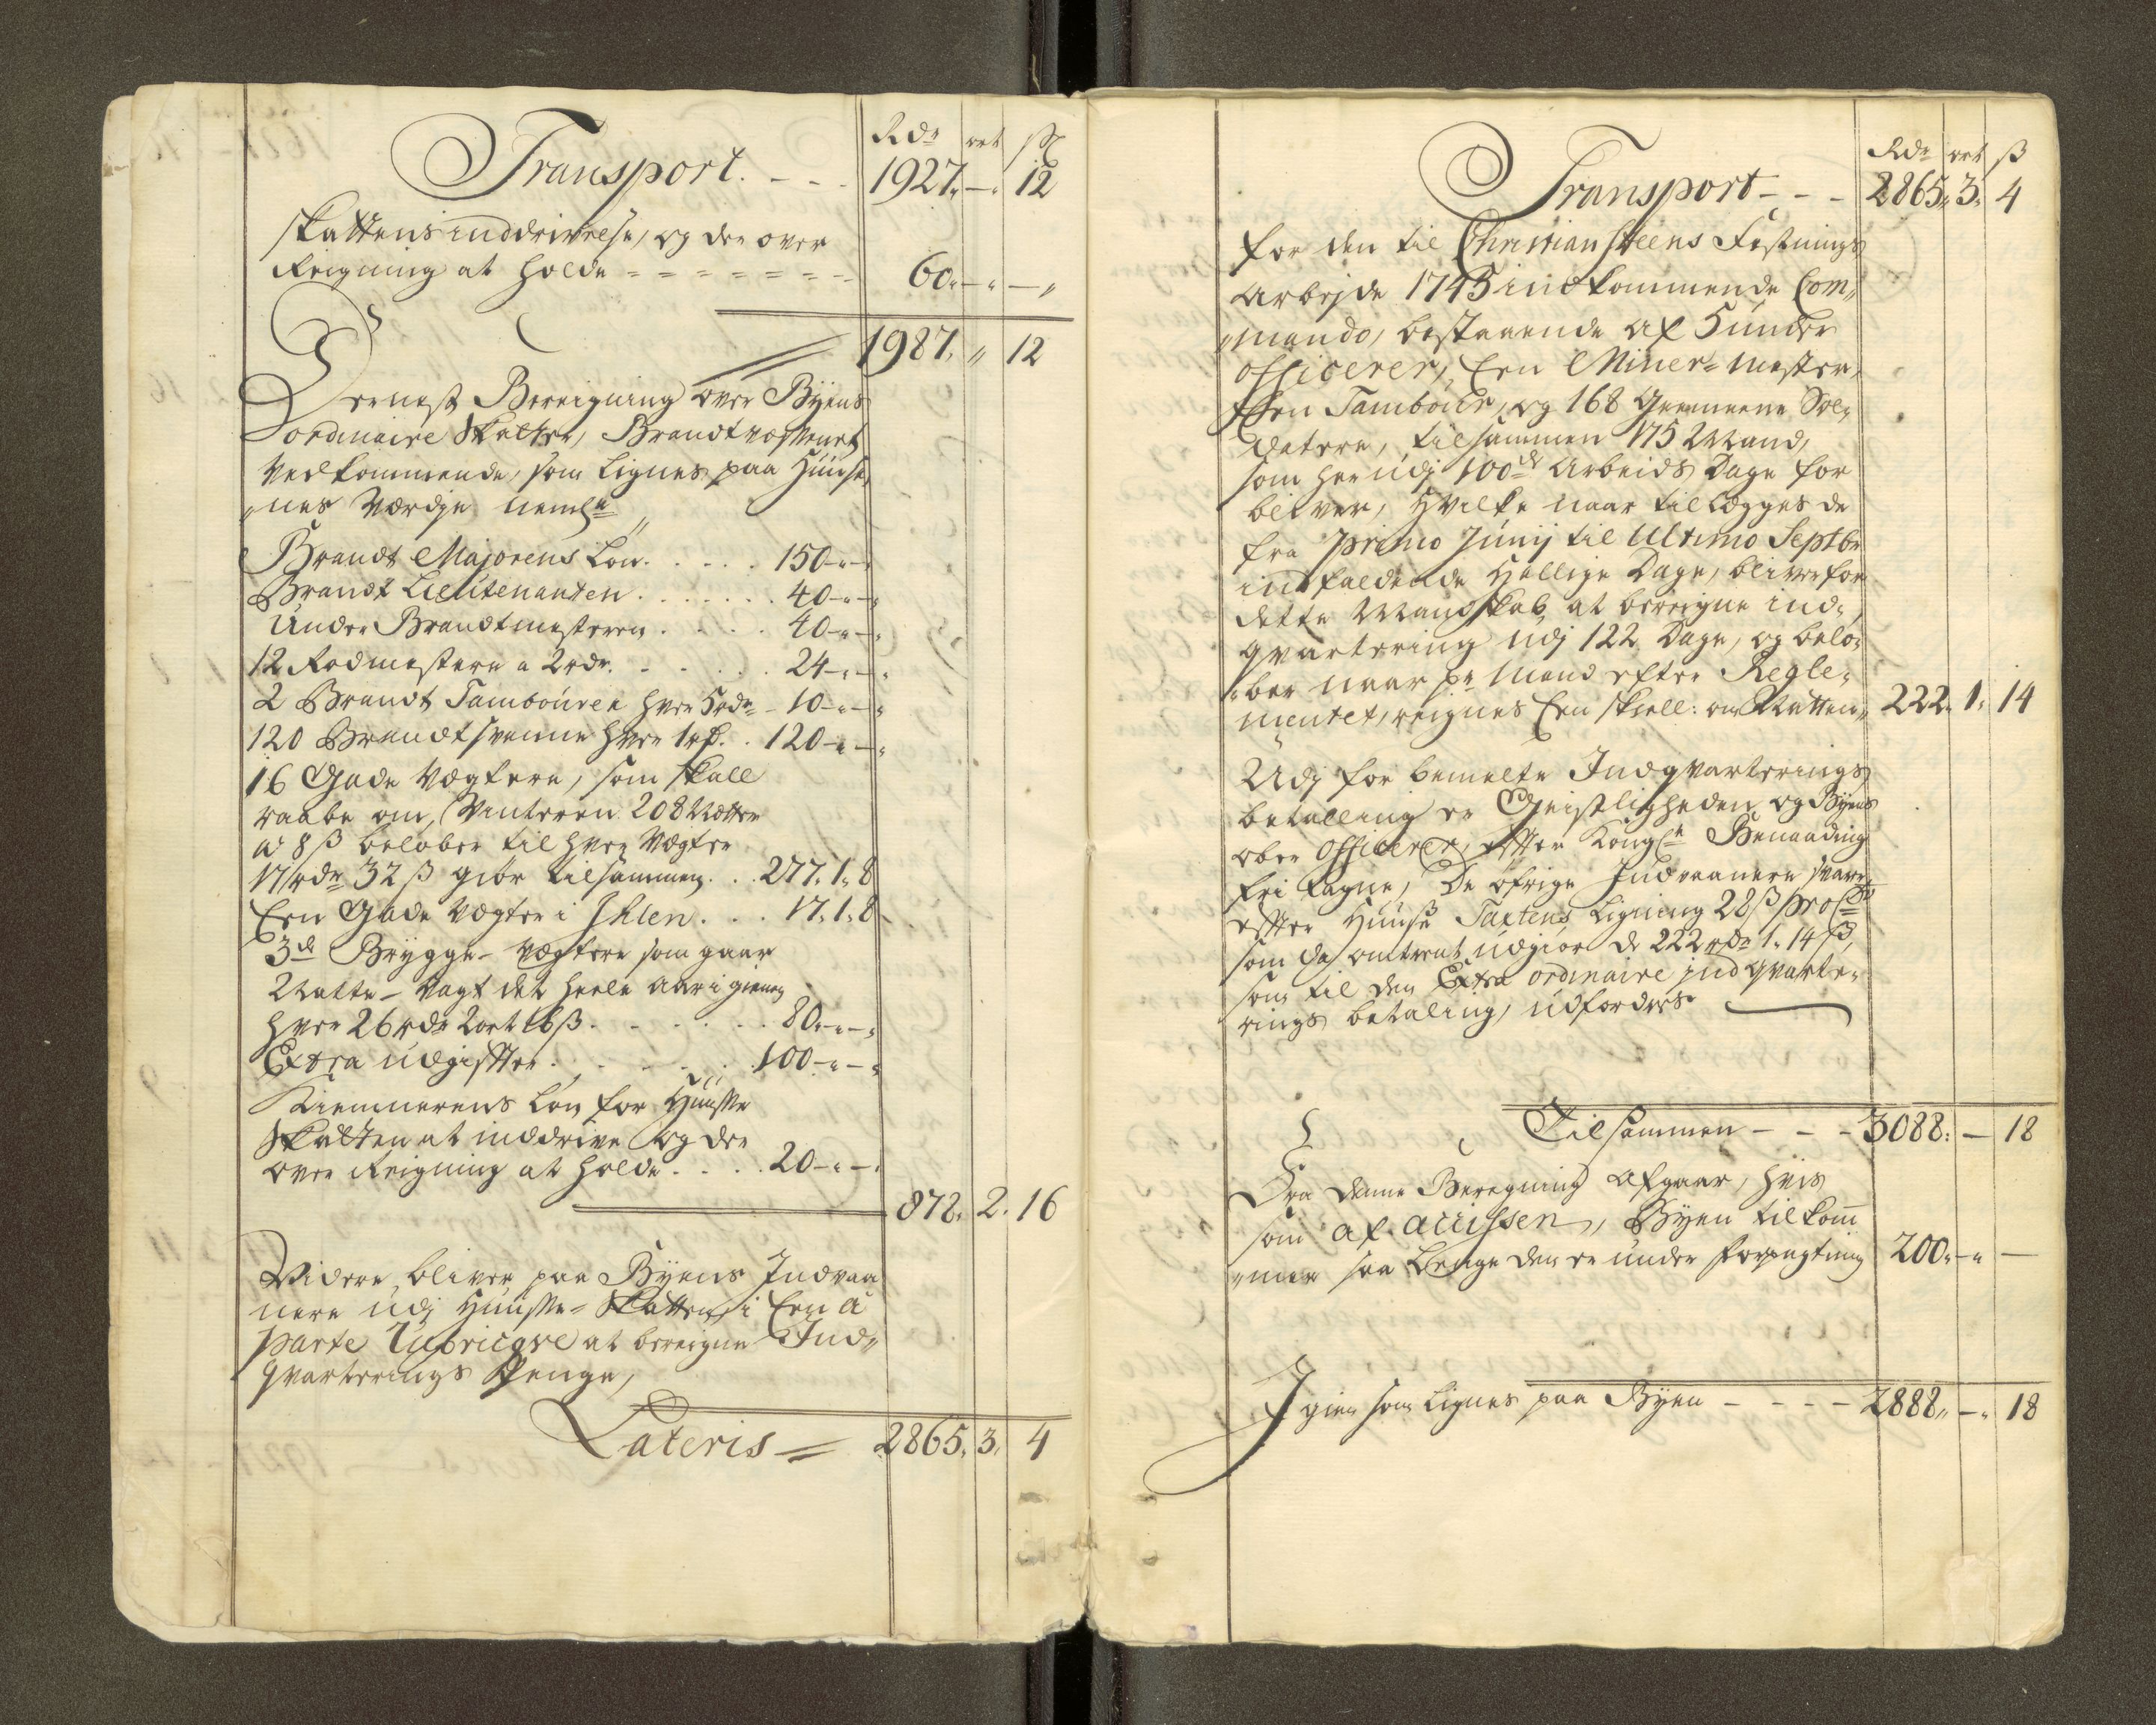 Rdr ort ß
Transport. - - - 1927. - " 12
Skattens inddrivelse, og der over
Reigning at holde - - - - - - - 60. - " - "
1987. " 12
Dernest Bereigning over Byens
ordinaire Skatter, Brandtvæsenet
Vedkommende, som lignes paa Huuse,,
,,nes Værdje nemlig
Brandt Majorens Løn. . . . . 150 - " - "
Brandt Lieutenanten . . . . . . 40 - " - "
Under Brandtmesteren . . . . 40 - " - "
12 Rodmestere a 2 rdr. . . . . 24 - " - "
2 Brandt Tambourer hver 5 rdr - 10 - " - "
120 Brandtsvenne hver 1 rd. . 120 - " - "
16 Gade Vægtere, som skall
raabe om Vinteren 208 Nætter
a 8 ß beløber til hver Vægter
17 rdr 32 ß giør tilsammen . . 277. 1. 8
Een Gade Vægter i Ihlen . . . 17. 1. 8
3de Brygge-Vægtere som gaar
Natte-Vagt det heele Aar igienem
hver 26 rdr 2 ort 16 ß . . . . . . . 80. - " - "
Extra udgiffter . . . . . . . 100 - " - "
Kiemnerens Løn for Huusse
Skatten at inddrive og der
over Reigning at holde . . . . 20 - " - "
878. 2. 16
Videre bliver paa Byens Indvaa
nere udj Huusse-Skatten i Een a
parte Rubriqve at bereigne Ind,,
qvarterings Penge,
Lateris = 2865. 3. 4
Rdr ort ß
Transport - - - 2865. 3. 4
for den til Christiansteens Festnings
Arbejde 1745 indkommende Com,,
,,mando, bestaaende af 5 under
officerer, Een Miner-mester,
Een Tambour, og 168 Gemeene Sol,,
datere, tilsammen 175 Mand,
som her udj 100de Arbeids Dage for
bliver, Hvilke naar tillegges de
fra primo Junij til Ultimo Septbr
indfaldende Hellige Dage, bliver for
dette Mandskab at bereigne ind,,
qvartering udj 122 Dage, og belø,,
,,ber naar pr Mand efter Regle,,
mentet, reignes Een skiell: om Natten,, 222. 1. 14
Udj for bemelte Indqvarterings
betalling er Geistligheden og Byens
ober officerer, effter Kongl Benaading
fri tagne, De øfrige Indvaanere svare
effter Huuse Taxtens Ligning 28 ß pro Ct
som da omtrent udgiør de 222 rdr 1. 14 ß,
som til den Extra ordinaire indqvarte,,
rings betaling, udfordres
Tilsammen - - - 3088. - 18
Fra denne Beregning afgaar, hvis
som af Accissen, Byen tilkom
,,mer saa Lenge den er under Forpagtning 200. - " -
Igien som lignes paa Byen - - - - 2888,, - " 18